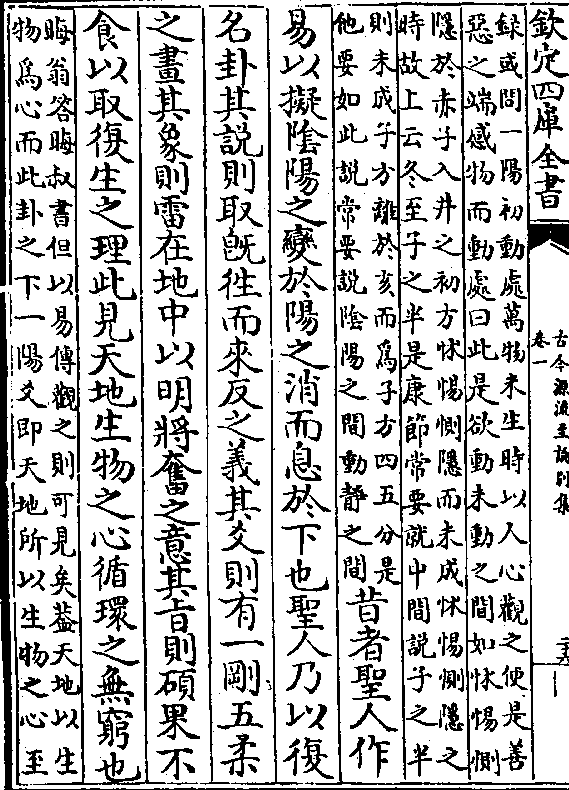 欽定四庫全書
古今源流至論別集
卷一
録或問一陽初動處萬物未生時以人心觀之便是善
惡之端感物而動處曰此是欲動未動之間如怵惕惻
隱於赤子入井之初方怵惕惻隱而未成怵惕惻隱之
時故上云冬至子之半是康節常要就中間説子之半
則未成子方離於亥而爲子方四五分是
他要如此説常要説陰陽之間動靜之間
昔者聖人作
易以擬陰陽之變於陽之消而息於下也聖人乃以復
名卦其説則取旣徃而來反之義其爻則有一剛五柔
之畫其象則雷在地中以明將奮之意其旨則碩果不
食以取復生之理此見天地生物之心循環之無窮也
晦翁答晦叔書但以易傳觀之則可見矣葢天地以生
物爲心而此卦之下一陽爻即天地所以生物之心至